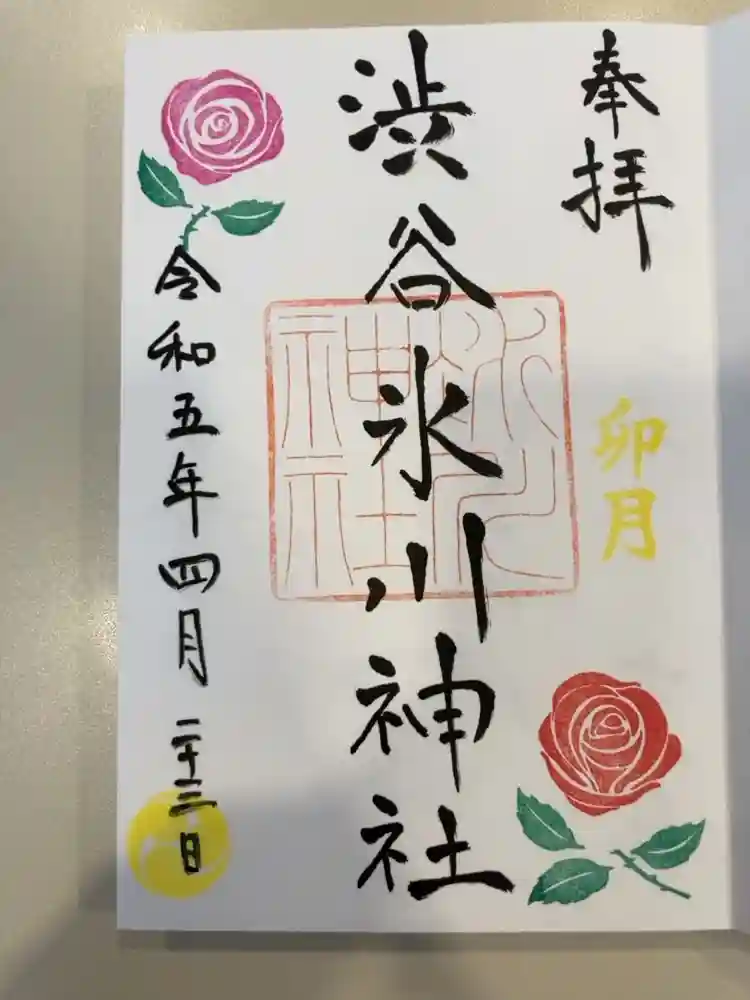 奉拝
卯月
渋谷氷川神社
氷川神社
令和五年四月二十三日